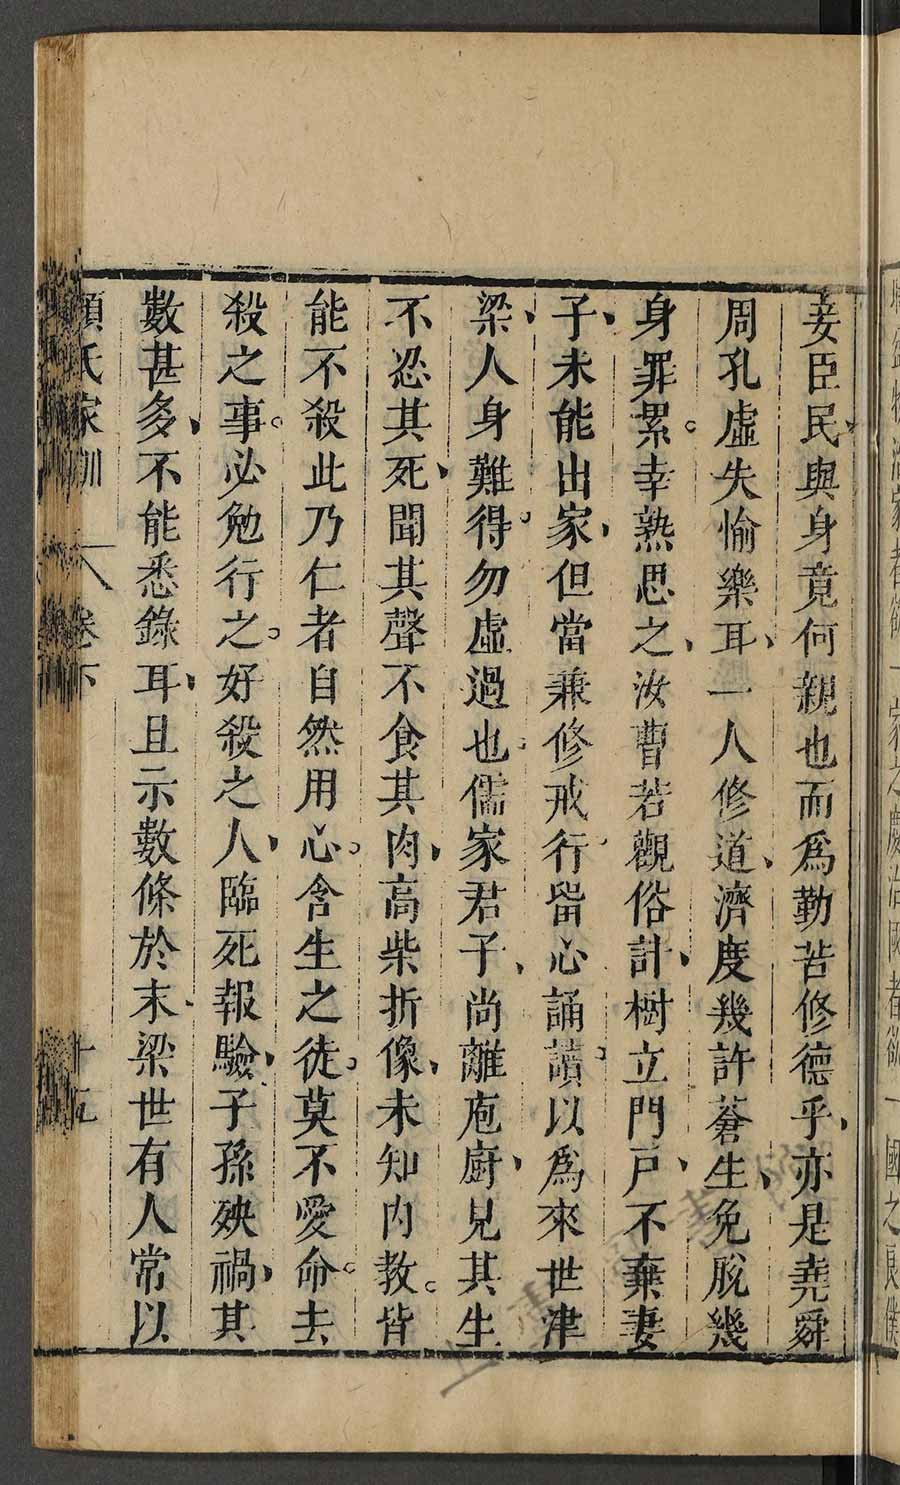 妾臣民、與身竟何親也而爲勤苦修德乎、亦是堯舜
周孔虛失愉樂耳、一人修道、濟度幾許蒼生、免脫幾
身罪累。幸熟思之、汝曹若觀俗計、樹立門戸、不棄妻
子、未能出家、但當兼修戒行、畱心誦讀、以爲來世津
梁、人身難得。勿虛過也。儒家君子、尚離庖廚、見其生
不忍其死、聞其聲不食其肉、高柴折像、未知内教。皆
能不殺此乃仁者自然用心。含生之徒。莫不愛命。去
殺之事。必勉行之。好殺之人、臨死報驗、子孫殃禍、其
數甚多、不能悉錄耳、且示數條於末、梁世有人常以
顏氏家訓 卷下 十五